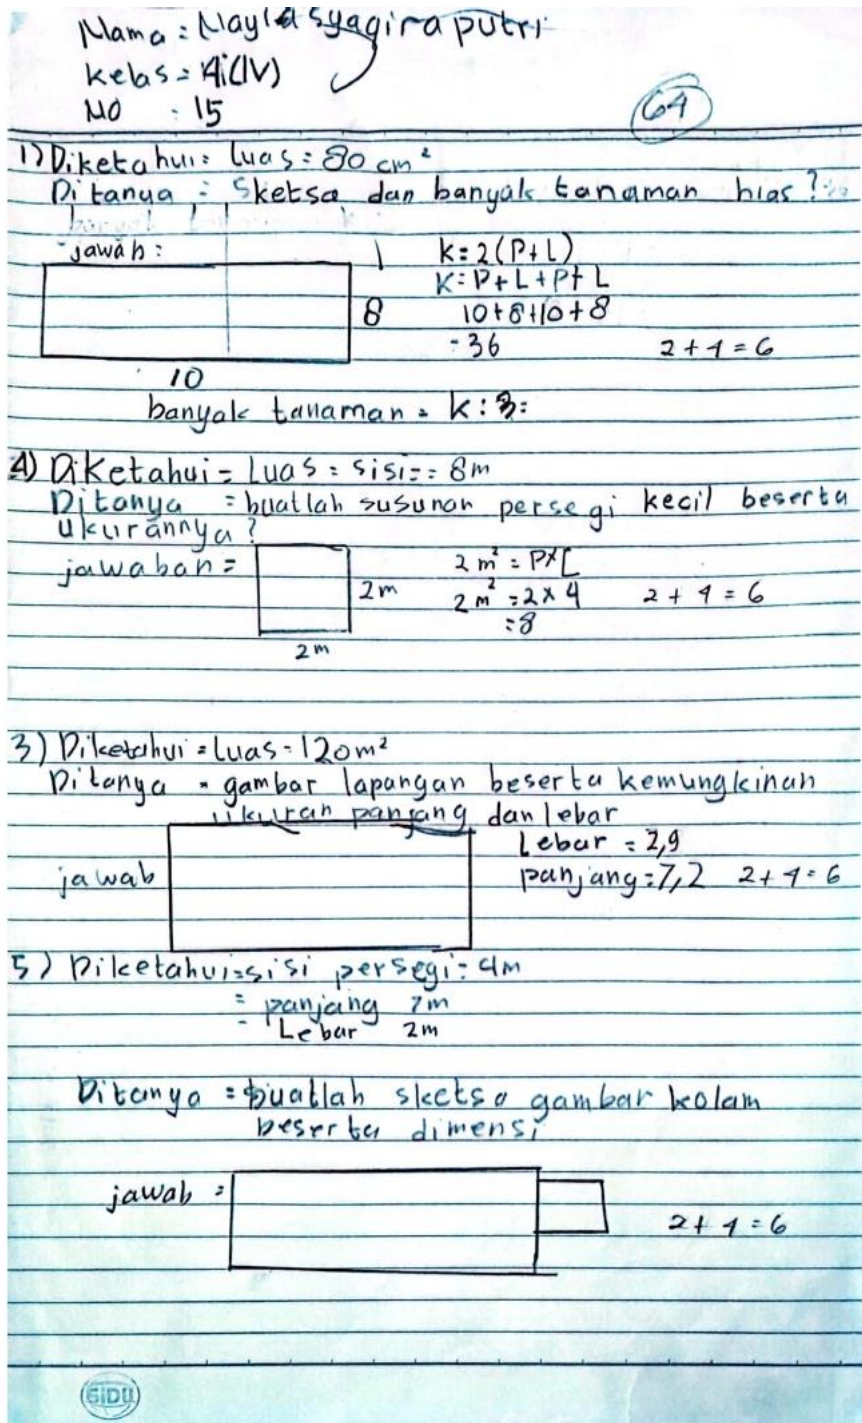 Nama : Nayla syagira putri
kelas = 4i(IV)
NO : 15
64
1) Diketahui = luas = 80 cm²
Ditanya = Sketsa dan banyak tanaman hias ?
jawab :
8
10
k = 2(P+L)
K = P+L+P+L
10+8+10+8
= 36
2 + 4 = 6
banyak tanaman = k : 3 =
4) Diketahui = Luas = sisi = = 8m
Ditanya = buatlah susunan persegi kecil beserta
ukurannya ?
jawaban =
2m
2m
2 m² = P×L
2 m² = 2 × 4
= 8
2 + 4 = 6
3) Diketahui = luas = 120m²
Ditanya = gambar lapangan beserta kemungkinan
ukuran panjang dan lebar
jawab
Lebar = 2,9
panjang = 7,2
2 + 4 = 6
5) Diketahui = sisi persegi = 4m
= panjang 7m
= Lebar 2m
Ditanya = buatlah sketsa gambar kolam
beserta dimensi
jawab =
2 + 4 = 6
SIDU